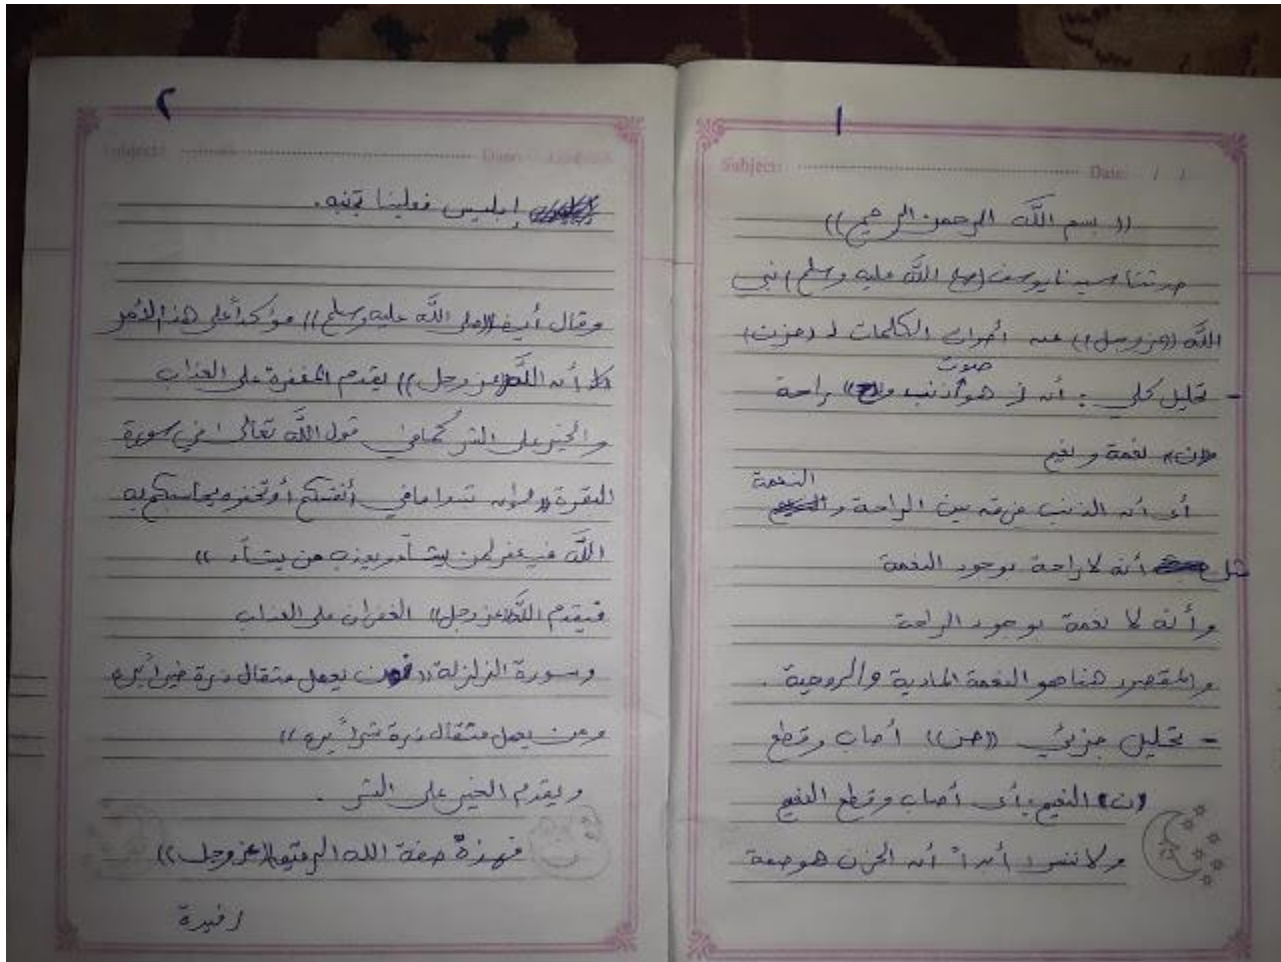 ١
Subject: Date: / /
(( بسم اللَّه الرحمن الرحيم ))
حدثنا سيدنا يوسف (صلى اللَّه عليه وسلم) نبي
اللَّه ((عز وجل)) عن أصوات الكلمات لـ (حزن)
صوت
- تحليل كلي : أن هو ذنب راحة
((ن)) نغمة و نغيم
النغمة
أي أن الذنب فرقه بين الراحة و
مثل أنه لا راحة بوجود النغمة
وأنه لا نغمة بوجود الراحة
والمقصود هنا هو النغمة المادية والروحية .
- تحليل جزئي ((حز)) أصاب وقطع
((ن)) النغيم أي أصاب وقطع النغيم
ولا ننسى أبداً أن الحزن هو صفة
٢
Subject: Date:
إبليس فعلينا تجنبه .
وقال أيضاً ((صلى اللَّه عليه وسلم)) مؤكداً على هذا الأمر
أن اللَّه ((عز وجل)) يقدم المغفرة على العذاب
والخير على الشر كما في قول اللَّه تعالى في سورة
البقرة ((وإن تبدوا ما في أنفسكم أو تخفوه يحاسبكم به
اللَّه فيغفر لمن يشآء ويعذب من يشآء ))
فيقدم اللَّه ((عز وجل)) الغفران على العذاب
وسورة الزلزلة ((فمن يعمل مثقال ذرة خيراً يره
ومن يعمل مثقال ذرة شراً يره ))
ويقدم الخير على الشر .
فهذه صفة الله ((عز وجل))